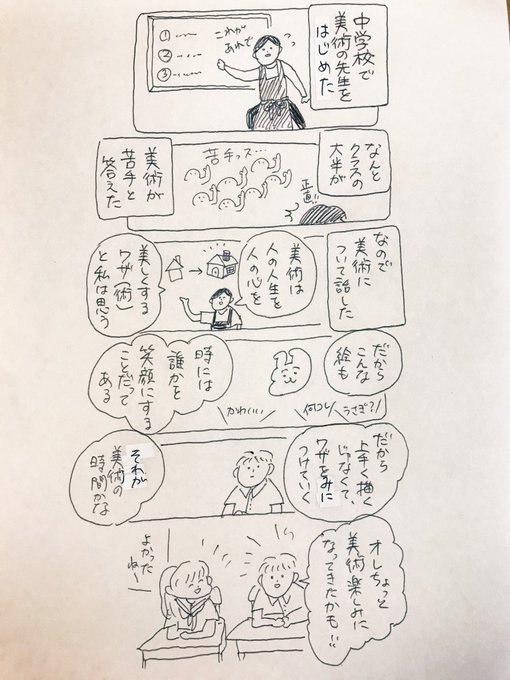 中学校で
美術の先生を
はじめた
これが
あれで
①
②
③
なんと
クラスの
大半が
正直!!
苦手っス…
美術が
苦手と
答えた
なので
美術に
ついて話した
美術は
人の人生を
人の心を
美しくする
ワザ(術)
と私は思う
だから
こんな
絵も
うさぎ?
何コレ
かわいい
時には
誰かを
笑顔にする
ことだって
ある
だから
上手く描く
じゃなくて、
ワザをみに
つけていく
それが
美術の
時間かな
オレちょっと
美術楽しみに
なってきたかも!!
よかった
ねー